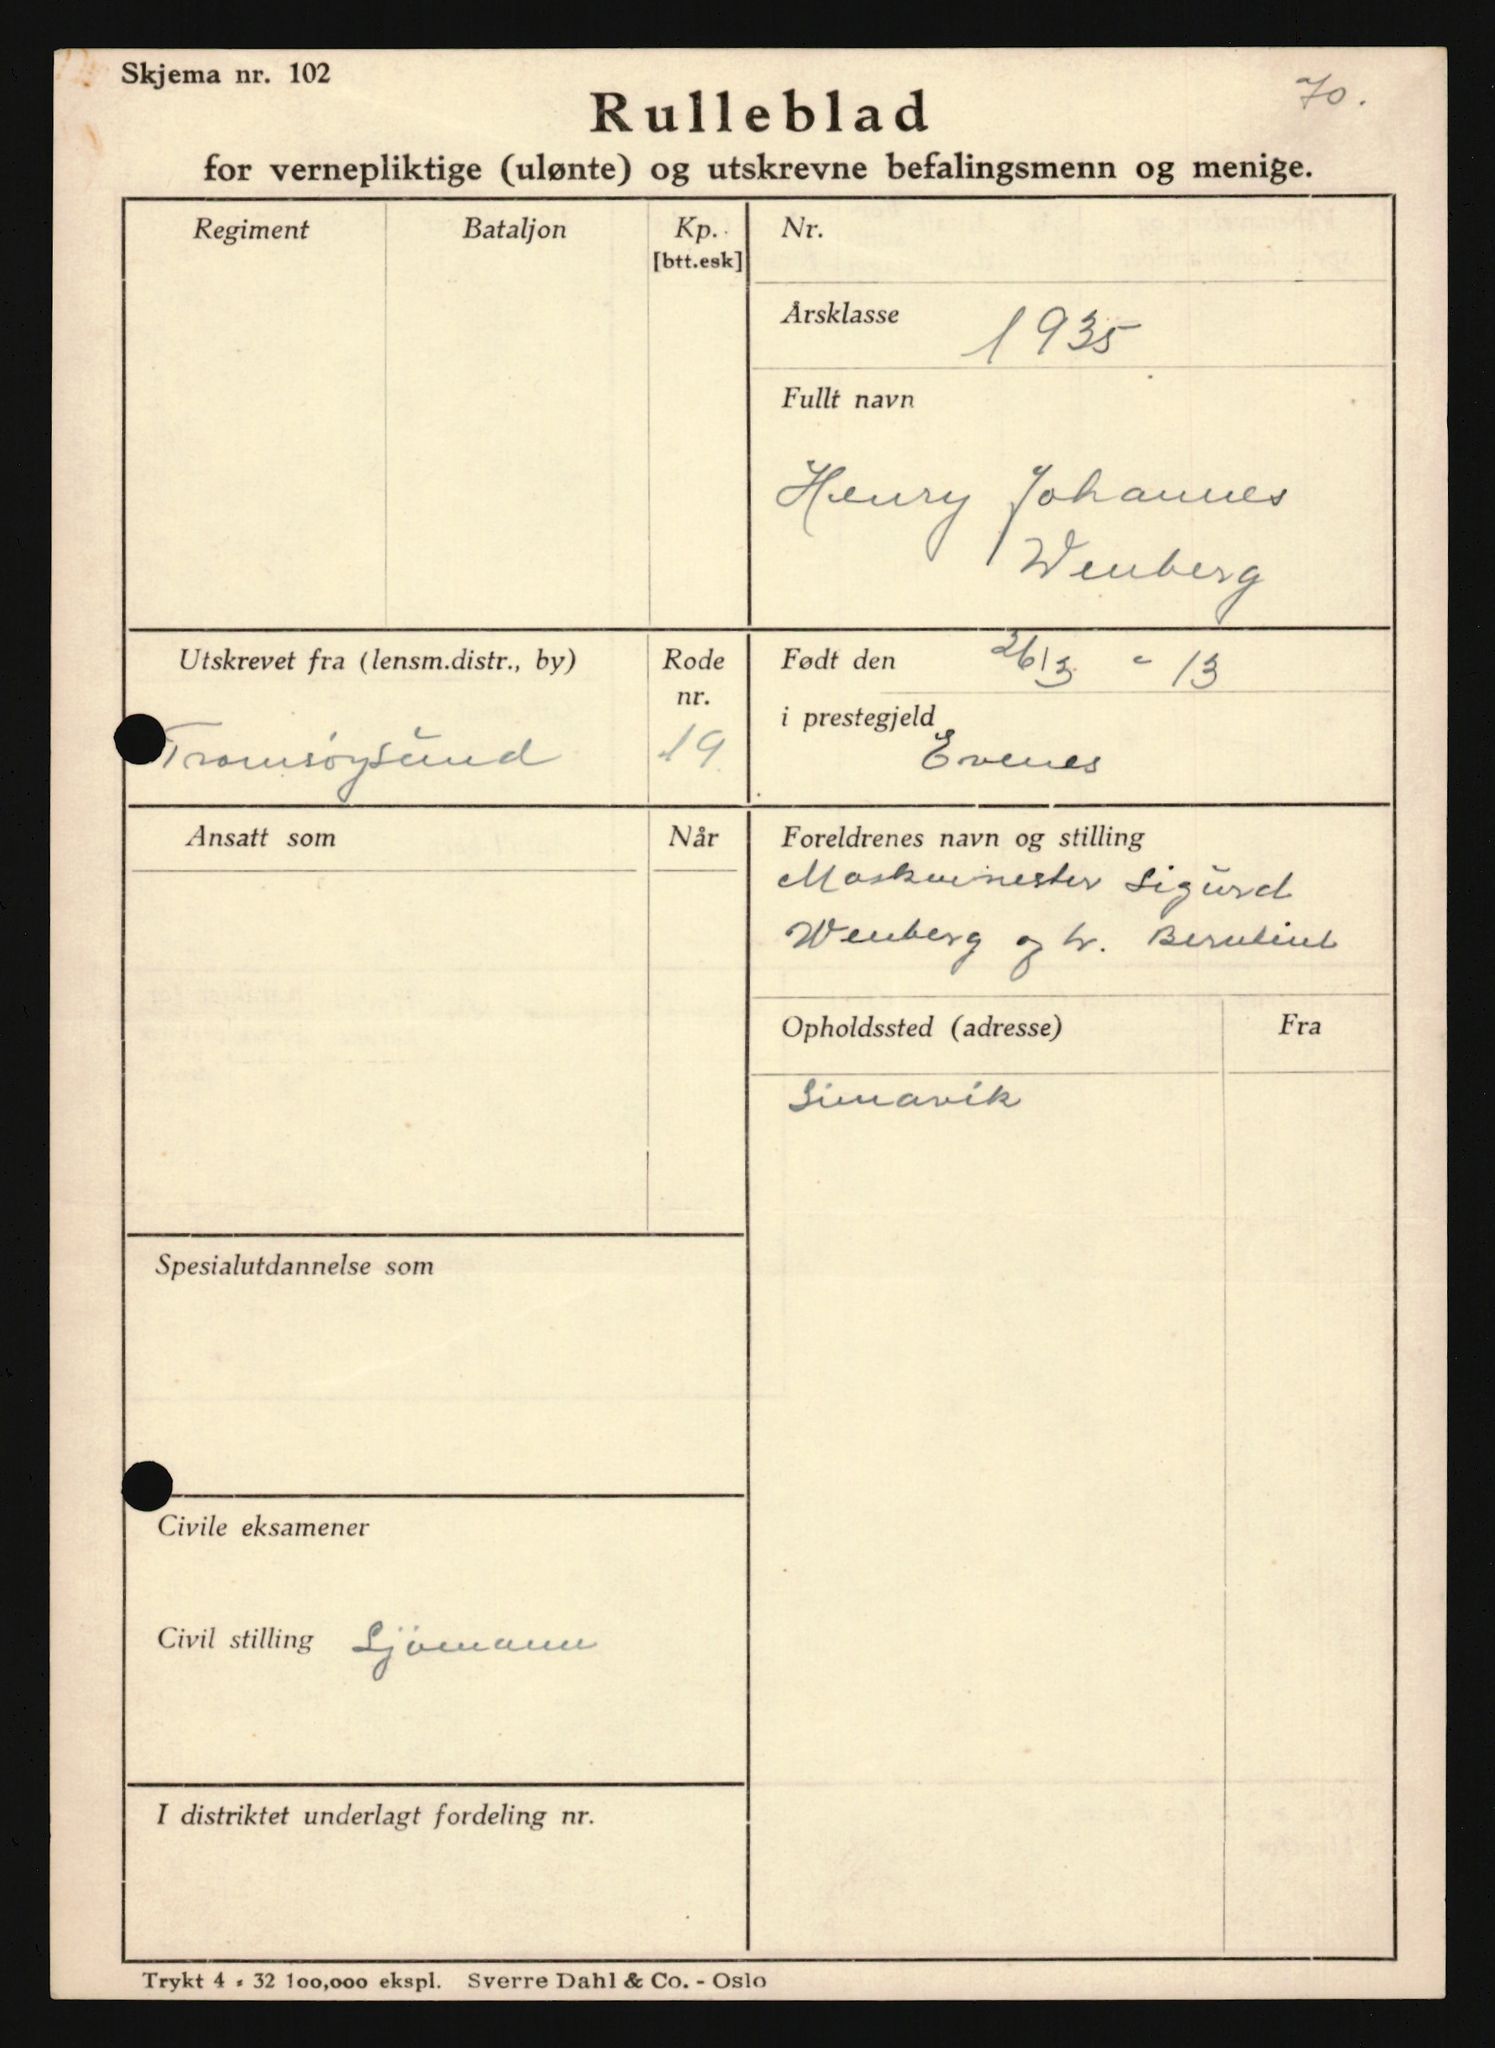 Skjema nr. 102
70.
Rulleblad
for vernepliktige (ulønte) og utskrevne befalingsmenn og menige.
Regiment
Bataljon
Kp.
[btt.esk]
Nr.
Årsklasse 1935
Fullt navn
Henry Johannes
Wenberg
Utskrevet fra (lensm.distr., by)
Tromsøysund
Rode
nr.
19
Født den 26/3 - 13
i prestegjeld
Evenes
Ansatt som
Når
Foreldrenes navn og stilling
Maskinester Sigurd
Wenberg og h.
Opholdssted (adresse)
Fra
Simavik
Spesialutdannelse som
Civile eksamener
Civil stilling Sjömann
I distriktet underlagt fordeling nr.
Trykt 4 - 32 100,000 ekspl. Sverre Dahl & Co. - Oslo